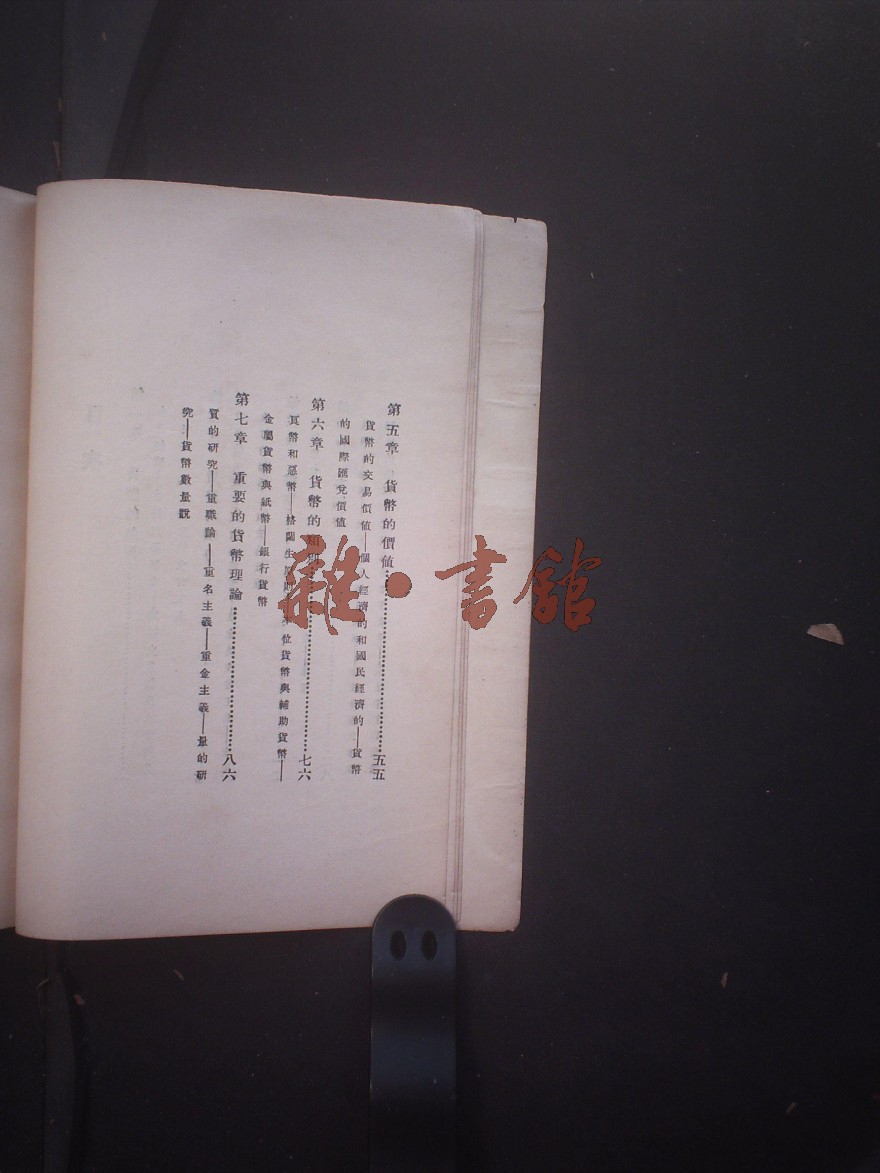 第五章 貨幣的價值……………………五五
貨幣的交易價值——個人經濟的和國民經濟的——貨幣
的國際匯兌價值
第六章 貨幣的……………………七六
良幣和惡幣——格蘭生 位貨幣與輔助貨幣——
金屬貨幣與紙幣——銀行貨幣
第七章 重要的貨幣理論……………………八六
質的研究——重職論——重名主義——重金主義——量的研
究——貨幣數量說
雜·書館